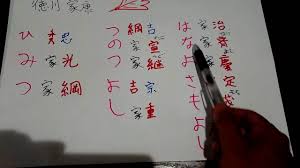 徳川家康
ひ 秀忠
み 家光
つ 家綱
つ 綱吉
の 家宣
つ 家継
よ 吉宗
し 家重
は 家治
な 家斉
よ 家慶
さ 家定
も
よ
し